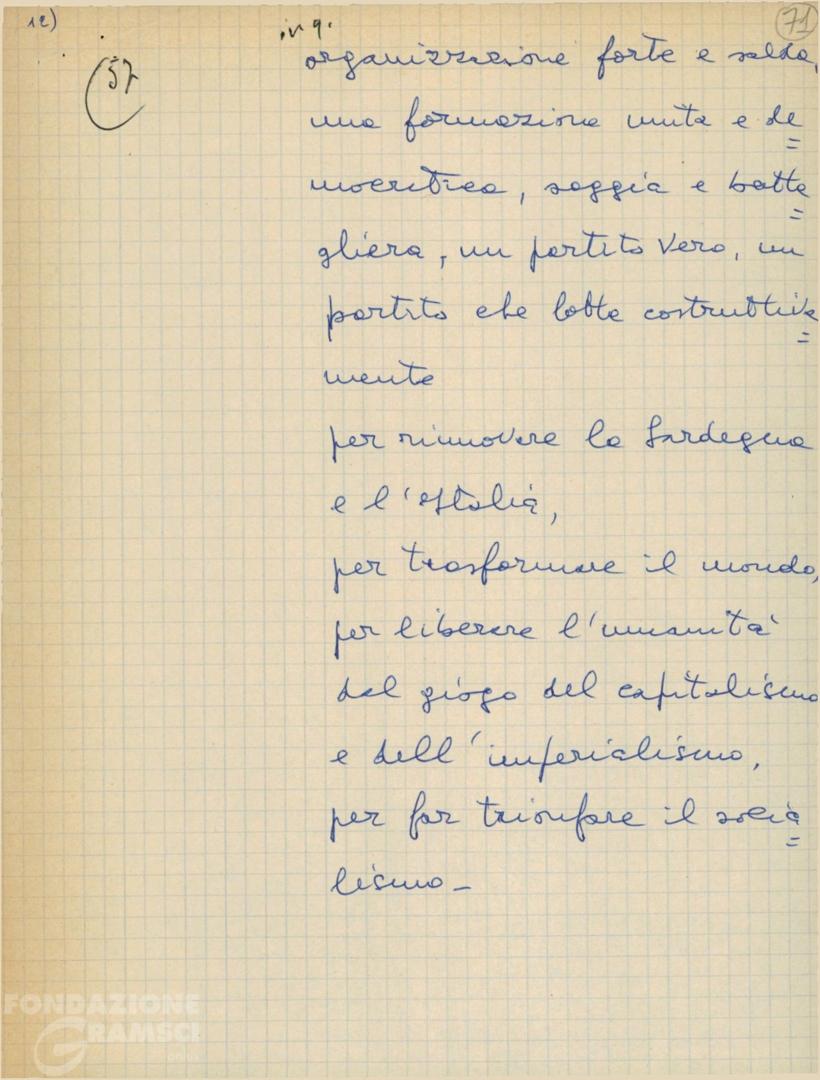 12)
71
57
organizzazione forte e salda,
una formazione unita e de=
mocratica, saggia e batta=
gliera, un partito vero, un
partito che lotta costruttiva=
mente
per rinnovare la Sardegna
e l'Italia,
per trasformare il mondo,
per liberare l'umanità
dal giogo del capitalismo
e dell'imperialismo,
per far trionfare il socia=
lismo_
FONDAZIONE
GRAMSCI